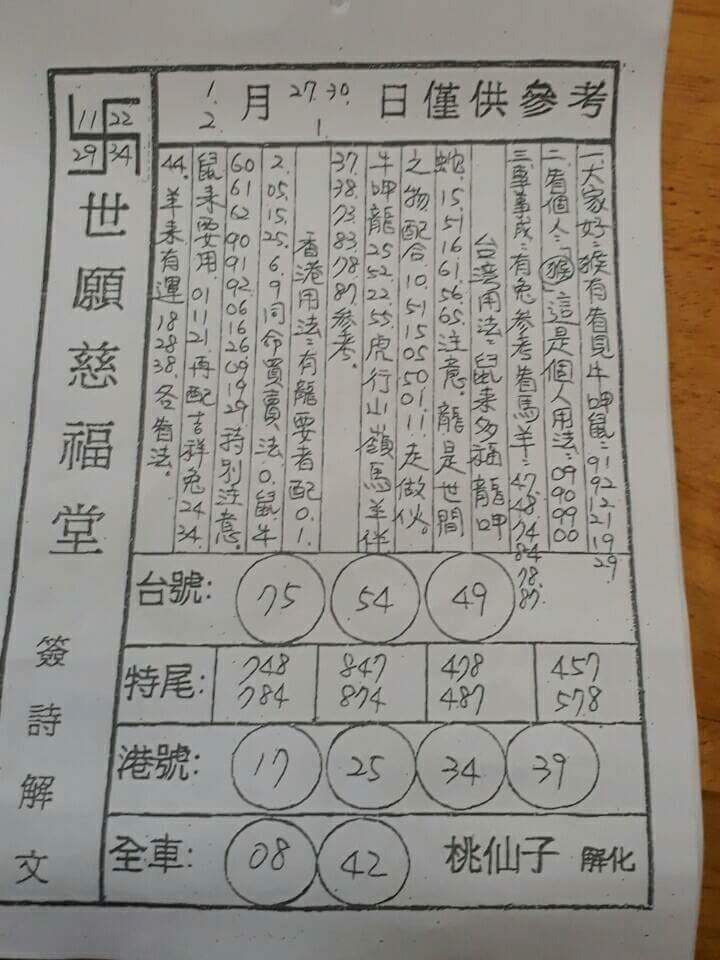 1. 月 27. 30. 日僅供參考
2. 1
11 22
29 34
世願慈福堂
簽詩解文
一.大家好:猴有看見牛呷鼠:91 92 12 21 19 29
二.看個人:「猴」這是個人用法:09 90 99 00
三.事事成:有兔參考看馬羊:47.48.74 84 78.87.
台灣用法:鼠來多福龍呷
蛇.15.51.16.61.56.65.注意.龍是世間
之物配合.10.51.15.05.50.01.11.走做伙.
牛呷龍25.52.22.55.虎行山嶺馬羊伴
37.38.73.83.78.87.參考.
香港用法:有龍要者配0.1.
2.05.15.25.6.9同命買賣法.0.鼠.牛
60 61 62 90 91 92 06 16 26 09 19 29 特別注意.
鼠來要用.01 11 21.再配吉祥兔24 34.
44.羊來有運18 28 38.各看法.
台號: 75 54 49
特尾: 748 847 478 457
784 874 487 578
港號: 17 25 34 39
全車: 08 42 桃仙子 解化